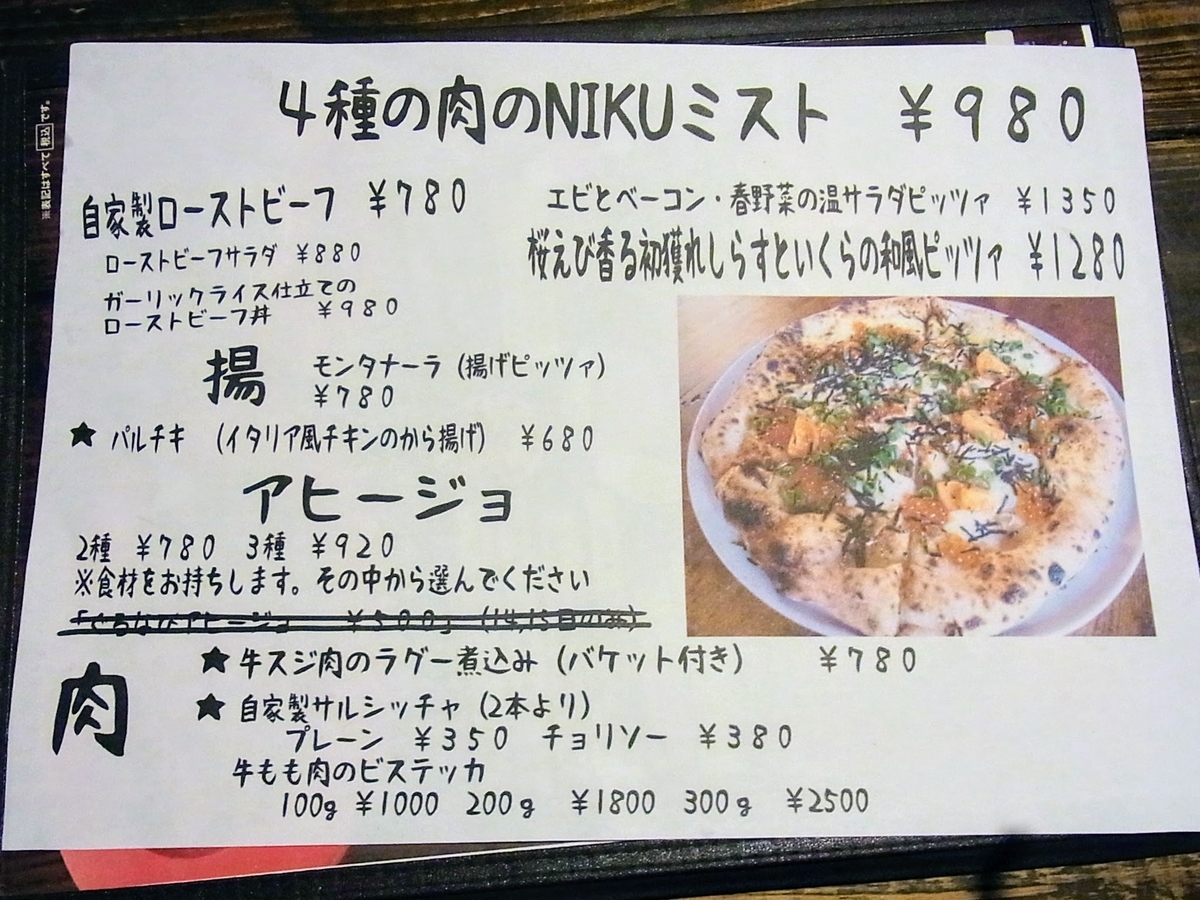 4種の肉のNIKUミスト ¥980
自家製ローストビーフ ¥780
ローストビーフサラダ ¥880
ガーリックライス仕立ての
ローストビーフ丼 ¥980
エビとベーコン・春野菜の温サラダピッツァ ¥1350
桜えび香る初獲れしらすといくらの和風ピッツァ ¥1280
揚 モンタナーラ (揚げピッツァ)
¥780
★ パルチキ (イタリア風チキンのから揚げ) ¥680
アヒージョ
2種 ¥780 3種 ¥920
※食材をお持ちします。その中から選んでください
アヒージョ ¥500」 (14,15日のみ)
肉
★ 牛スジ肉のラグー煮込み (バケット付き) ¥780
★ 自家製サルシッチャ (2本より)
プレーン ¥350 チョリソー ¥380
牛もも肉のビステッカ
100g ¥1000 200g ¥1800 300g ¥2500
※表記はすべて税込です。